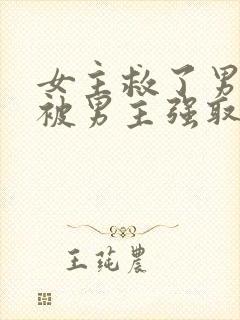 女主救了男
被男主强取
王莼农